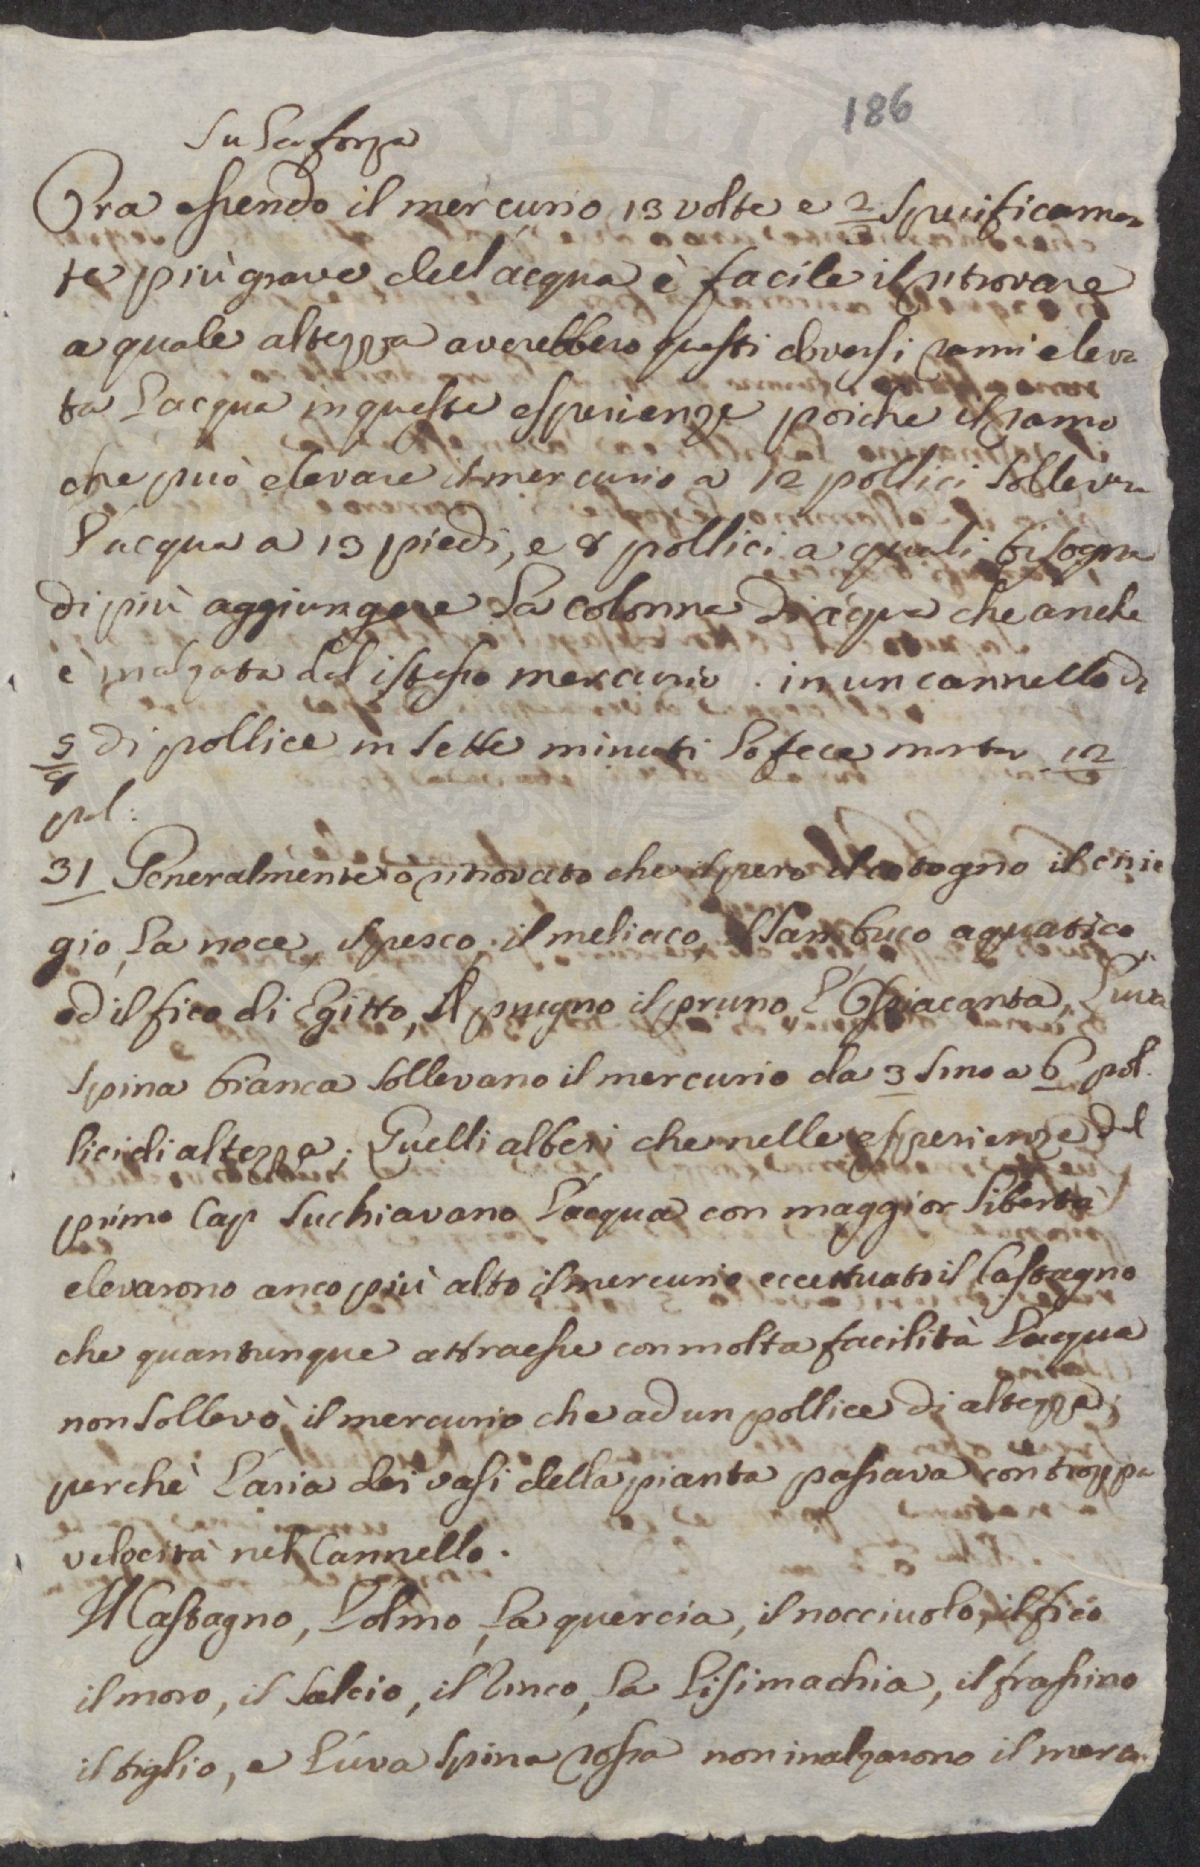 186
Su la forza
Ora essendo il mercurio 13 volte e 2/3 specificamen
te più grave dell'acqua è facile il ritrovare
a quale altezza averebbero questi diversi rami eleva
ta l'acqua in queste esperienze poiche il ramo
che può elevare il mercurio a 12 pollici solleva
l'acqua a 13 piedi, e 8 pollici a quali bisogna
di più aggiungere la colonna di acqua che anche
è inalzata dal istesso mercurio. in un cannello di
5/4 di pollice in sette minuti lo fece montar 12
pol:
31 Generalmente ò ritrovato che il pero il cotogno il cirie
gio, la noce, il pesco, il meliaco, il Sambuco aquatico,
ed il fico di Egitto, il prugno il pruno, l' l'uva
spina bianca sollevano il mercurio da 3 sino a 6 pol
lici di altezza; Quelli alberi che nelle esperienze del
primo Cap succhiavano l'acqua con maggior libertà
elevarono anco più alto il mercurio eccettuato il Castagno
che quantunque attraesse con molta facilità l'acqua
non sollevò il mercurio che ad un pollice di altezza;
perchè l'aria dei vasi della pianta passava con troppa
velocità nel Cannello.
Il Castagno, l'olmo, la quercia, il nocciuolo, il fico
il moro, il salcio, il, la Lisimachia, il frassino
il tiglio, e l'uva spina rossa non inalzarono il mercu